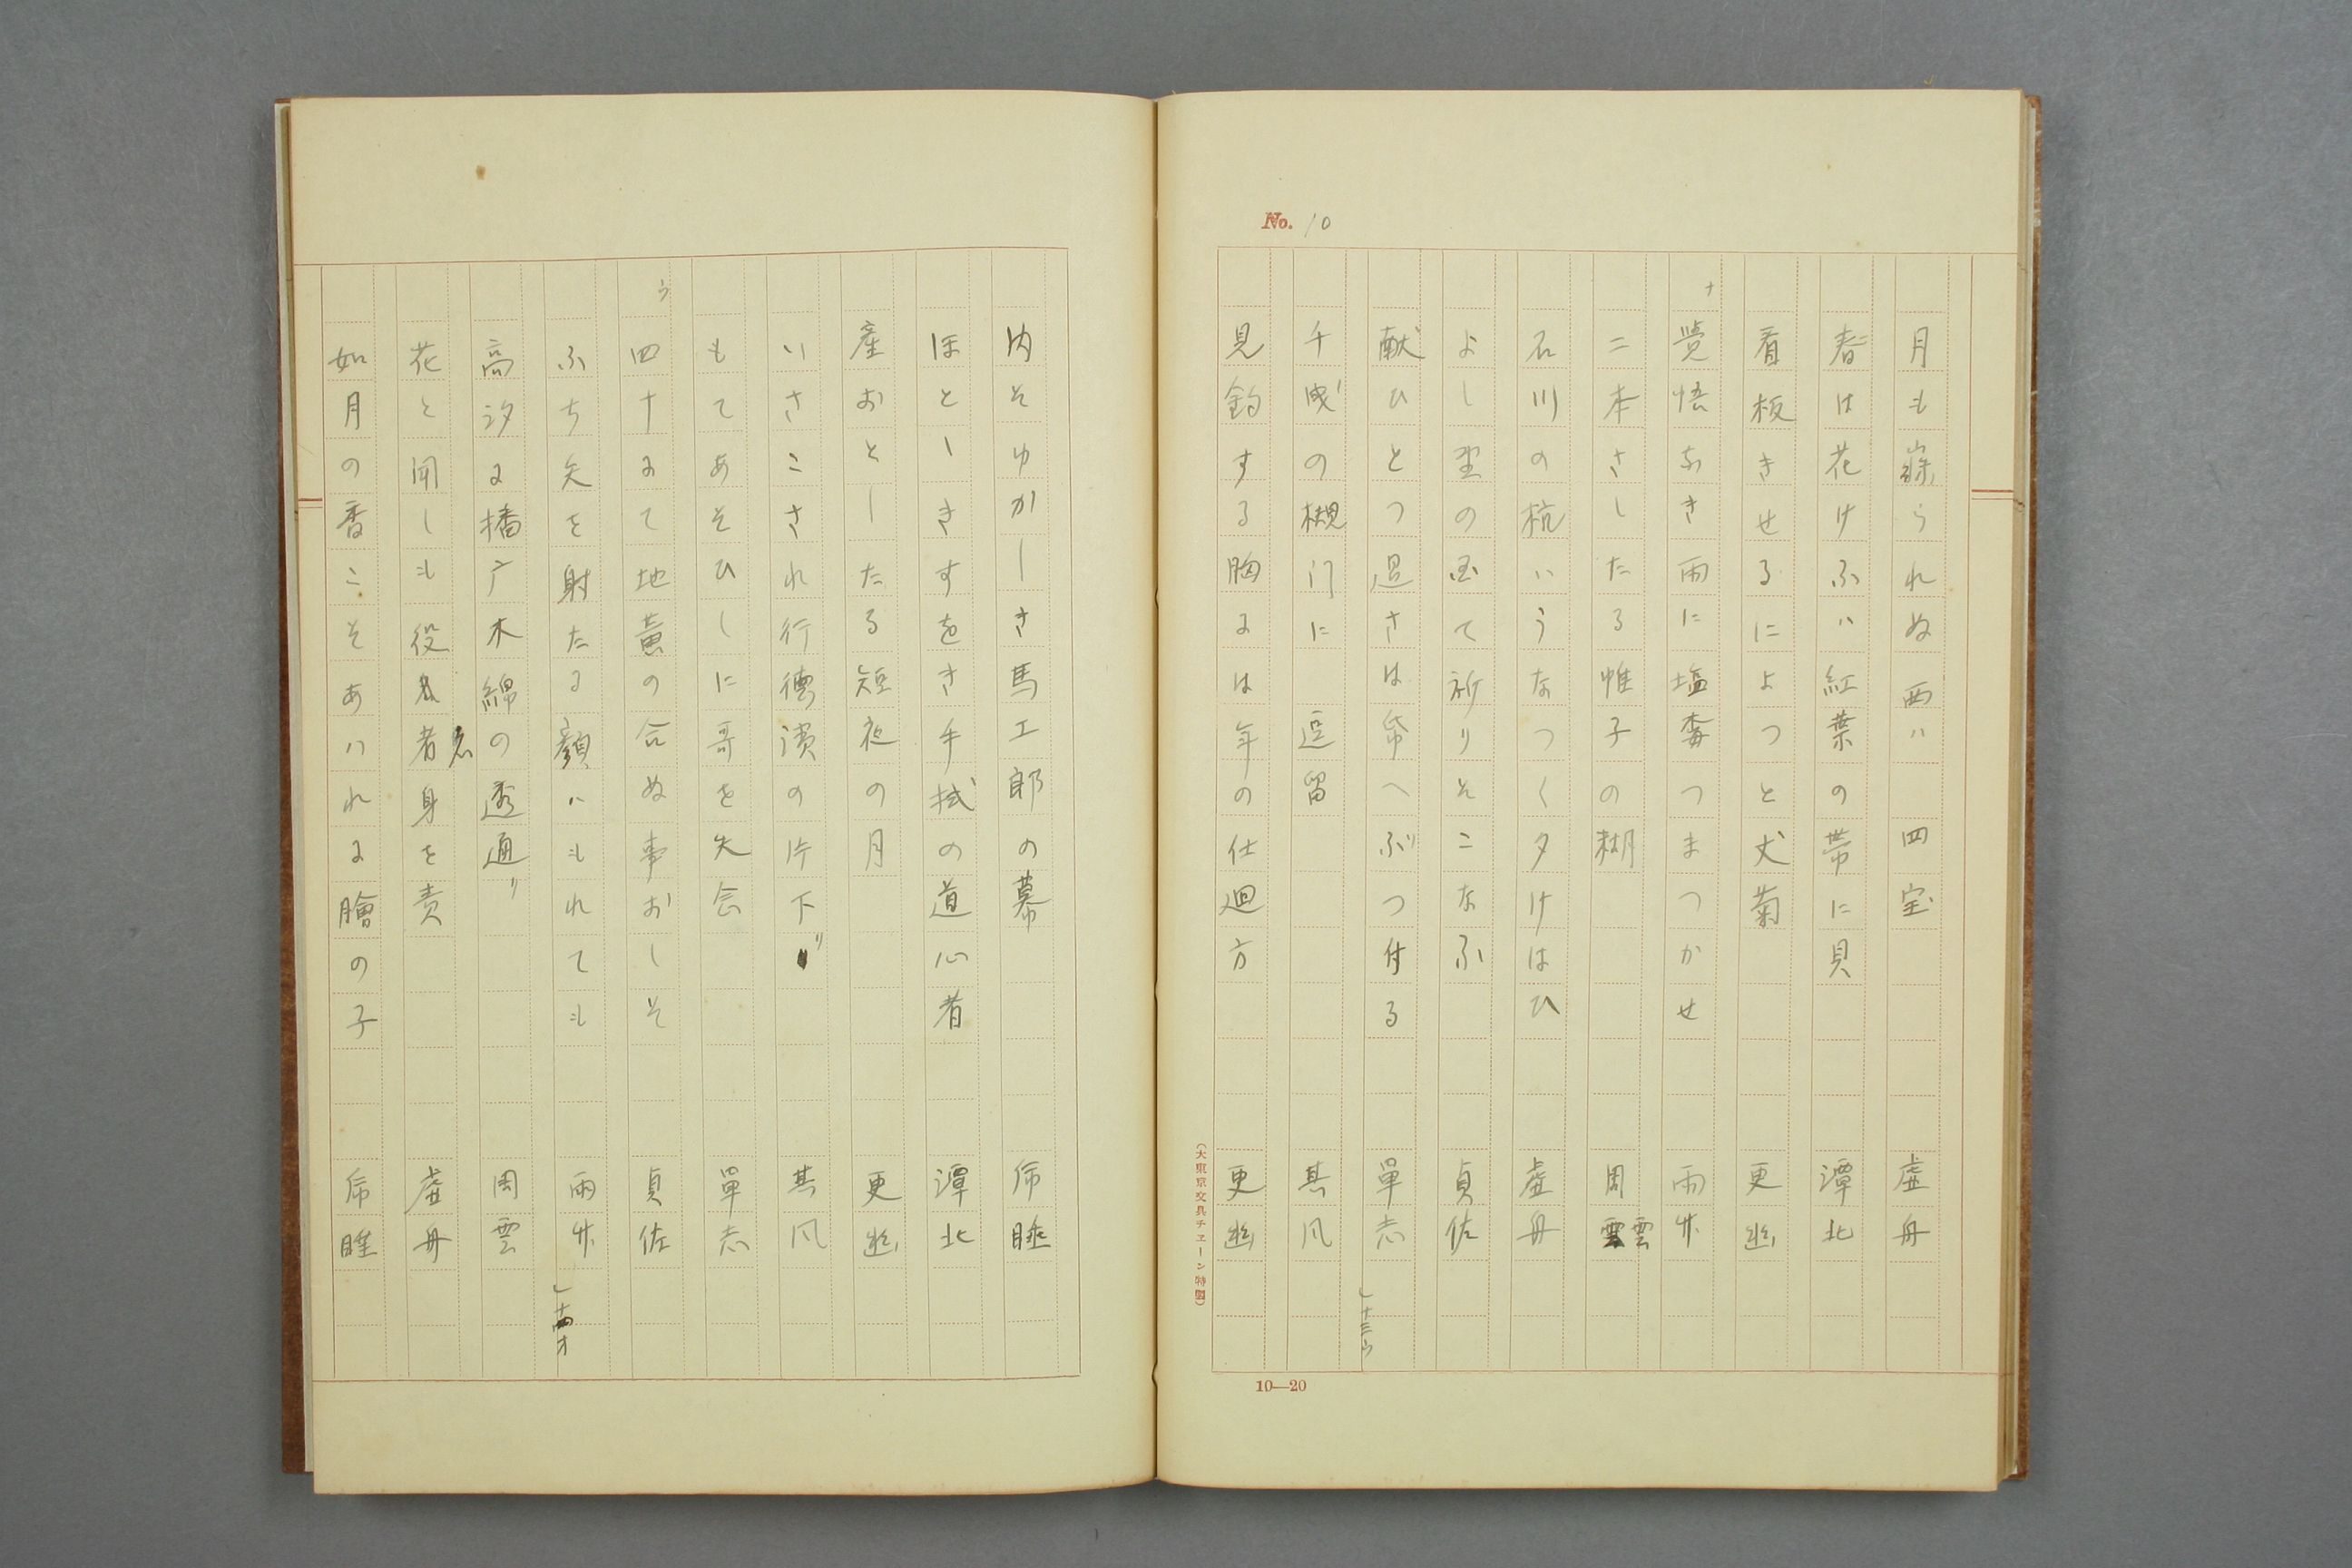 No. 10
月も寐られぬ西ハ四宝 虚舟
春は花けふハ紅葉の帯に貝 潭北
看板きせるによつと犬菊 更幽
ナ
覚悟なき雨に塩奩つまつかせ 雨竹
二本さしたる帷子の糊 周雲
石川の杭いうなつく夕けはひ 虚舟
よし里の画て祈りそこなふ 貞佐
献ひとつ過さは帋へぶつ付る 單志
」十三ウ
千曵の槻门に逗留 其风
見釣する胸には年の仕廻方 更幽
(大東京文具チエーン特製)
10—20
内そゆかしき馬工郎の幕 帋睡
ほとゝきすをき手拭の道心者 潭北
産おとしたる短夜の月 更幽
いさこされ行德濱の片下リ 其风
もてあそひしに哥を失念 單志
う
四十にて地黄の合ぬ事おしそ 貞佐
ふち矢を射たる顔ハもれても 雨竹
」十四オ
高汐に播广木綿の透通リ 周雲
花と聞しも役者身を責 虚舟
如月の香こそあハれに膾の子 帋睡